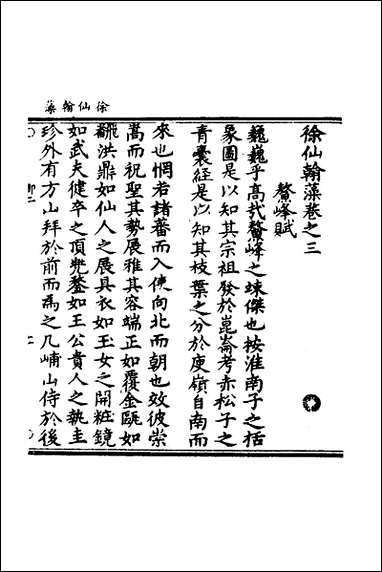 徐仙翰藻
徐仙翰藻卷之三
鰲峰賦
巍巍乎高哉鰲峰之竦傑也按淮南子之括
象圖是以知其宗祖發於崑崙考赤松子之
青囊經是以知其枝葉之分於庾嶺自南而
來也惘若諸蕃而入使向北而朝也效彼崇
嵩而祝聖其勢展雅其容端正如覆金甌如
飜洪鼎如仙人之展具衣如玉女之開粧鏡
如武夫健卒之頂兜鍪如王公貴人之執圭
珍外有方山拜於前而為之几峬山侍於後